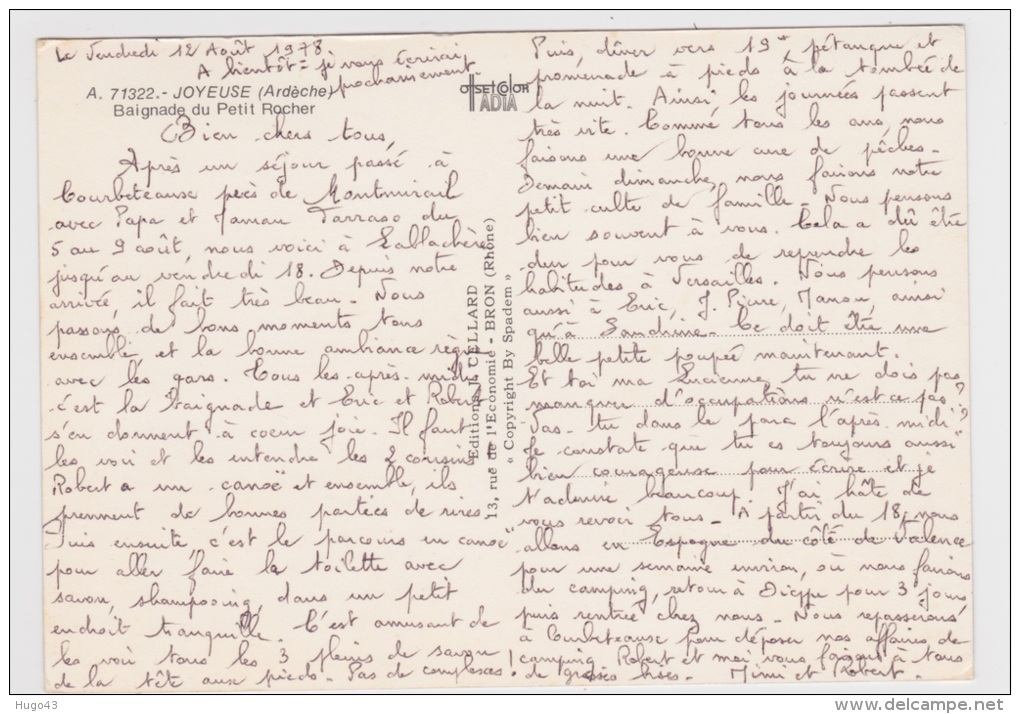 Le Vendredi 12 Août 1978
A bientôt = je vous écrirai
prochainement.
A. 71322.- JOYEUSE (Ardèche)
Baignade du Petit Rocher
Bien chers tous,
Après un séjour passé à
Courbeteause près de Montmirail
avec Papa et Maman Tarraso du
5 au 9 août, nous voici à Lablachère
jusqu'au vendredi 18. Depuis notre
arrivé, il fait très beau. Nous
passons de bons moments tous
ensemble et la bonne ambiance règne
avec les gars. Tous les après-midi
c'est la baignade et Eric et Robert
s'en donnent à coeur joie. Il faut
les voir et les entendre les 2 cousins
Robert a un canoë et ensemble, ils
prennent de bonnes parties de rires
Puis ensuite, c'est le parcours en canoë
pour aller faire la toilette avec
savon, shampooing, dans un petit
endroit tranquille. C'est amusant de
les voir tous les 3 pleins de savon
de la tête aux pieds. Pas de complexes!
OFFSETCOLOR
ADIA
Editions J. CELLARD
13, rue de l'Economie - BRON (Rhône)
« Copyright By Spadem »
Puis, dîner vers 19h, pétanque et
promenade à pieds à la tombée de
la nuit. Ainsi, les journées passent
très vite. Comme tous les ans, nous
faisons une bonne cure de pêches.
Demain dimanche, nous faisons notre
petit culte de famille. Nous pensons
bien souvent à vous. Cela a dû être
dur pour vous de reprendre les
habitudes à Versailles. Nous pensons
aussi à Eric, J. Pierre, Manou, ainsi
qu'à Sandrine. Ce doit être une
belle petite poupée maintenant.
Et toi ma Lucienne, tu ne dois pas
manquer d'occupations n'est ce pas?
Vas-tu dans le parc l'après-midi?
Je constate que tu es toujours aussi
bien courageuse pour écrire et je
t'admire beaucoup. J'ai hâte de
vous revoir tous. A partir du 18, nous
allons en Espagne du côté de Valence
pour une semaine environ, où nous faisons
du camping, retour à Dieppe pour 3 jours
puis rentrée chez nous. Nous repasserons
à Courbeteause pour déposer nos affaires de
camping. Robert et moi, vous faisons à tous
de grosses bises. Mimi et Robert.
Hugo43
www.delcampe.net